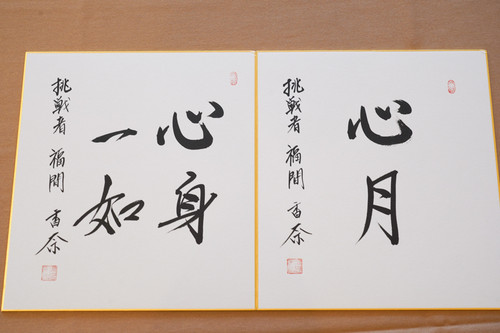 心月
挑戦者 福間 香奈
心身
一如
挑戦者 福間 香奈